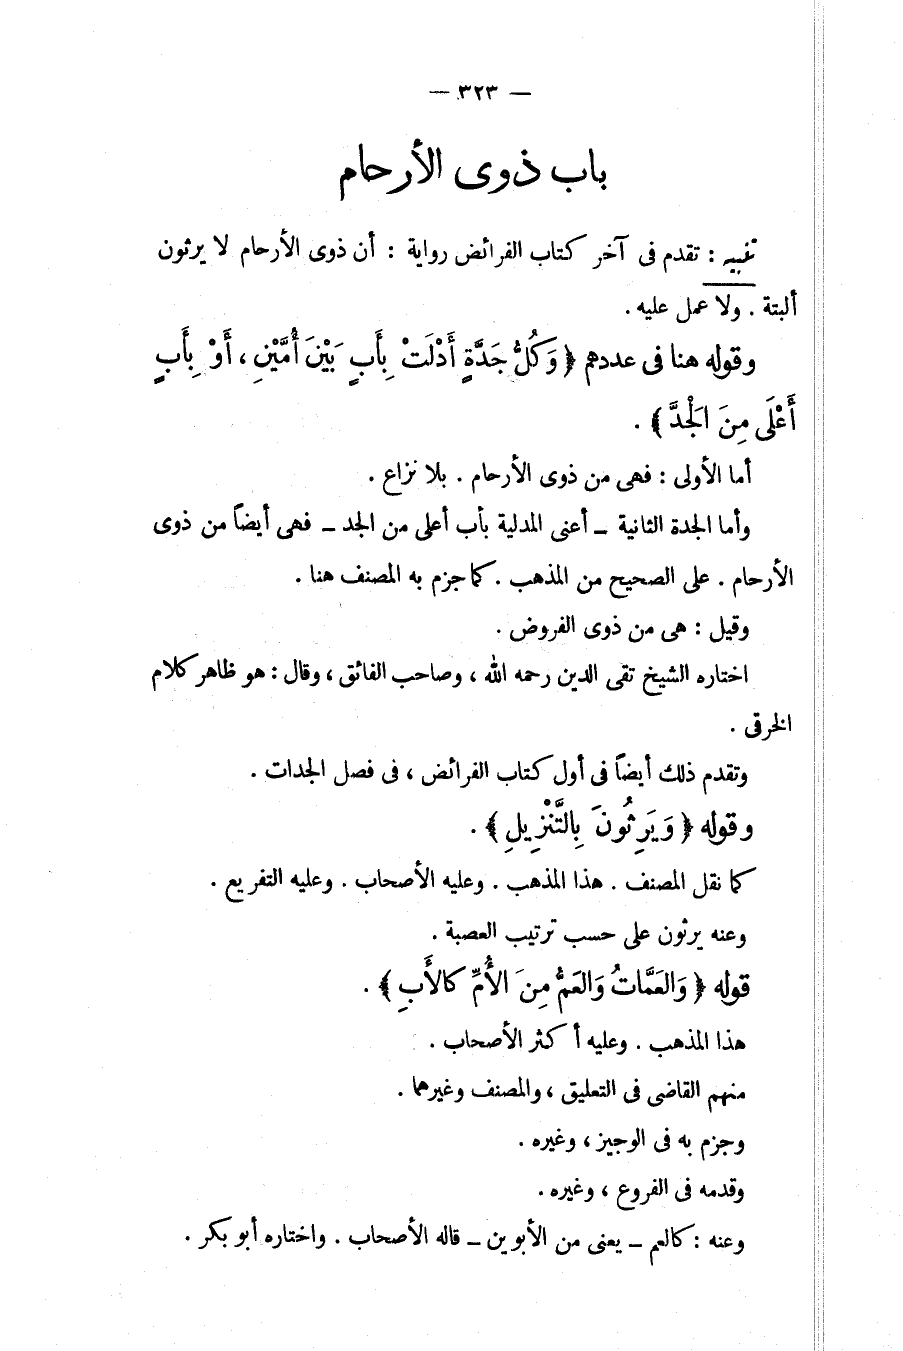 — ٣٢٣ —
باب ذوى الأرحام
تنبيه : تقدم فى آخر كتاب الفرائض رواية : أن ذوى الأرحام لا يرثون
ألبتة . ولا عمل عليه .
وقوله هنا فى عددهم ﴿ وَكُلُّ جَدَّةٍ أَدْلَتْ بِأَبٍ بَيْنَ أُمَّيْنِ ، أَوْ بِأَبٍ
أَعْلَى مِنَ الْجَدِّ ﴾ .
أما الأولى : فهى من ذوى الأرحام . بلا نزاع .
وأما الجدة الثانية – أعنى المدلية بأب أعلى من الجد – فهى أيضاً من ذوى
الأرحام . على الصحيح من المذهب . كما جزم به المصنف هنا .
وقيل : هى من ذوى الفروض .
اختاره الشيخ تقى الدين رحمه الله ، وصاحب الفائق ، وقال : هو ظاهر كلام
الخرقى .
وتقدم ذلك أيضاً فى أول كتاب الفرائض ، فى فصل الجدات .
وقوله ﴿ وَيَرِثُونَ بِالتَّنْزِيلِ ﴾ .
كما نقل المصنف . هذا المذهب . وعليه الأصحاب . وعليه التفريع .
وعنه يرثون على حسب ترتيب العصبة .
قوله ﴿ وَالعَمَّاتُ وَالعَمُّ مِنَ الأُمِّ كالأَبِ ﴾ .
هذا المذهب . وعليه أكثر الأصحاب .
منهم القاضى فى التعليق ، والمصنف وغيرهما .
وجزم به فى الوجيز ، وغيره .
وقدمه فى الفروع ، وغيره .
وعنه : كالعم – يعنى من الأبوين – قاله الأصحاب . واختاره أبو بكر .